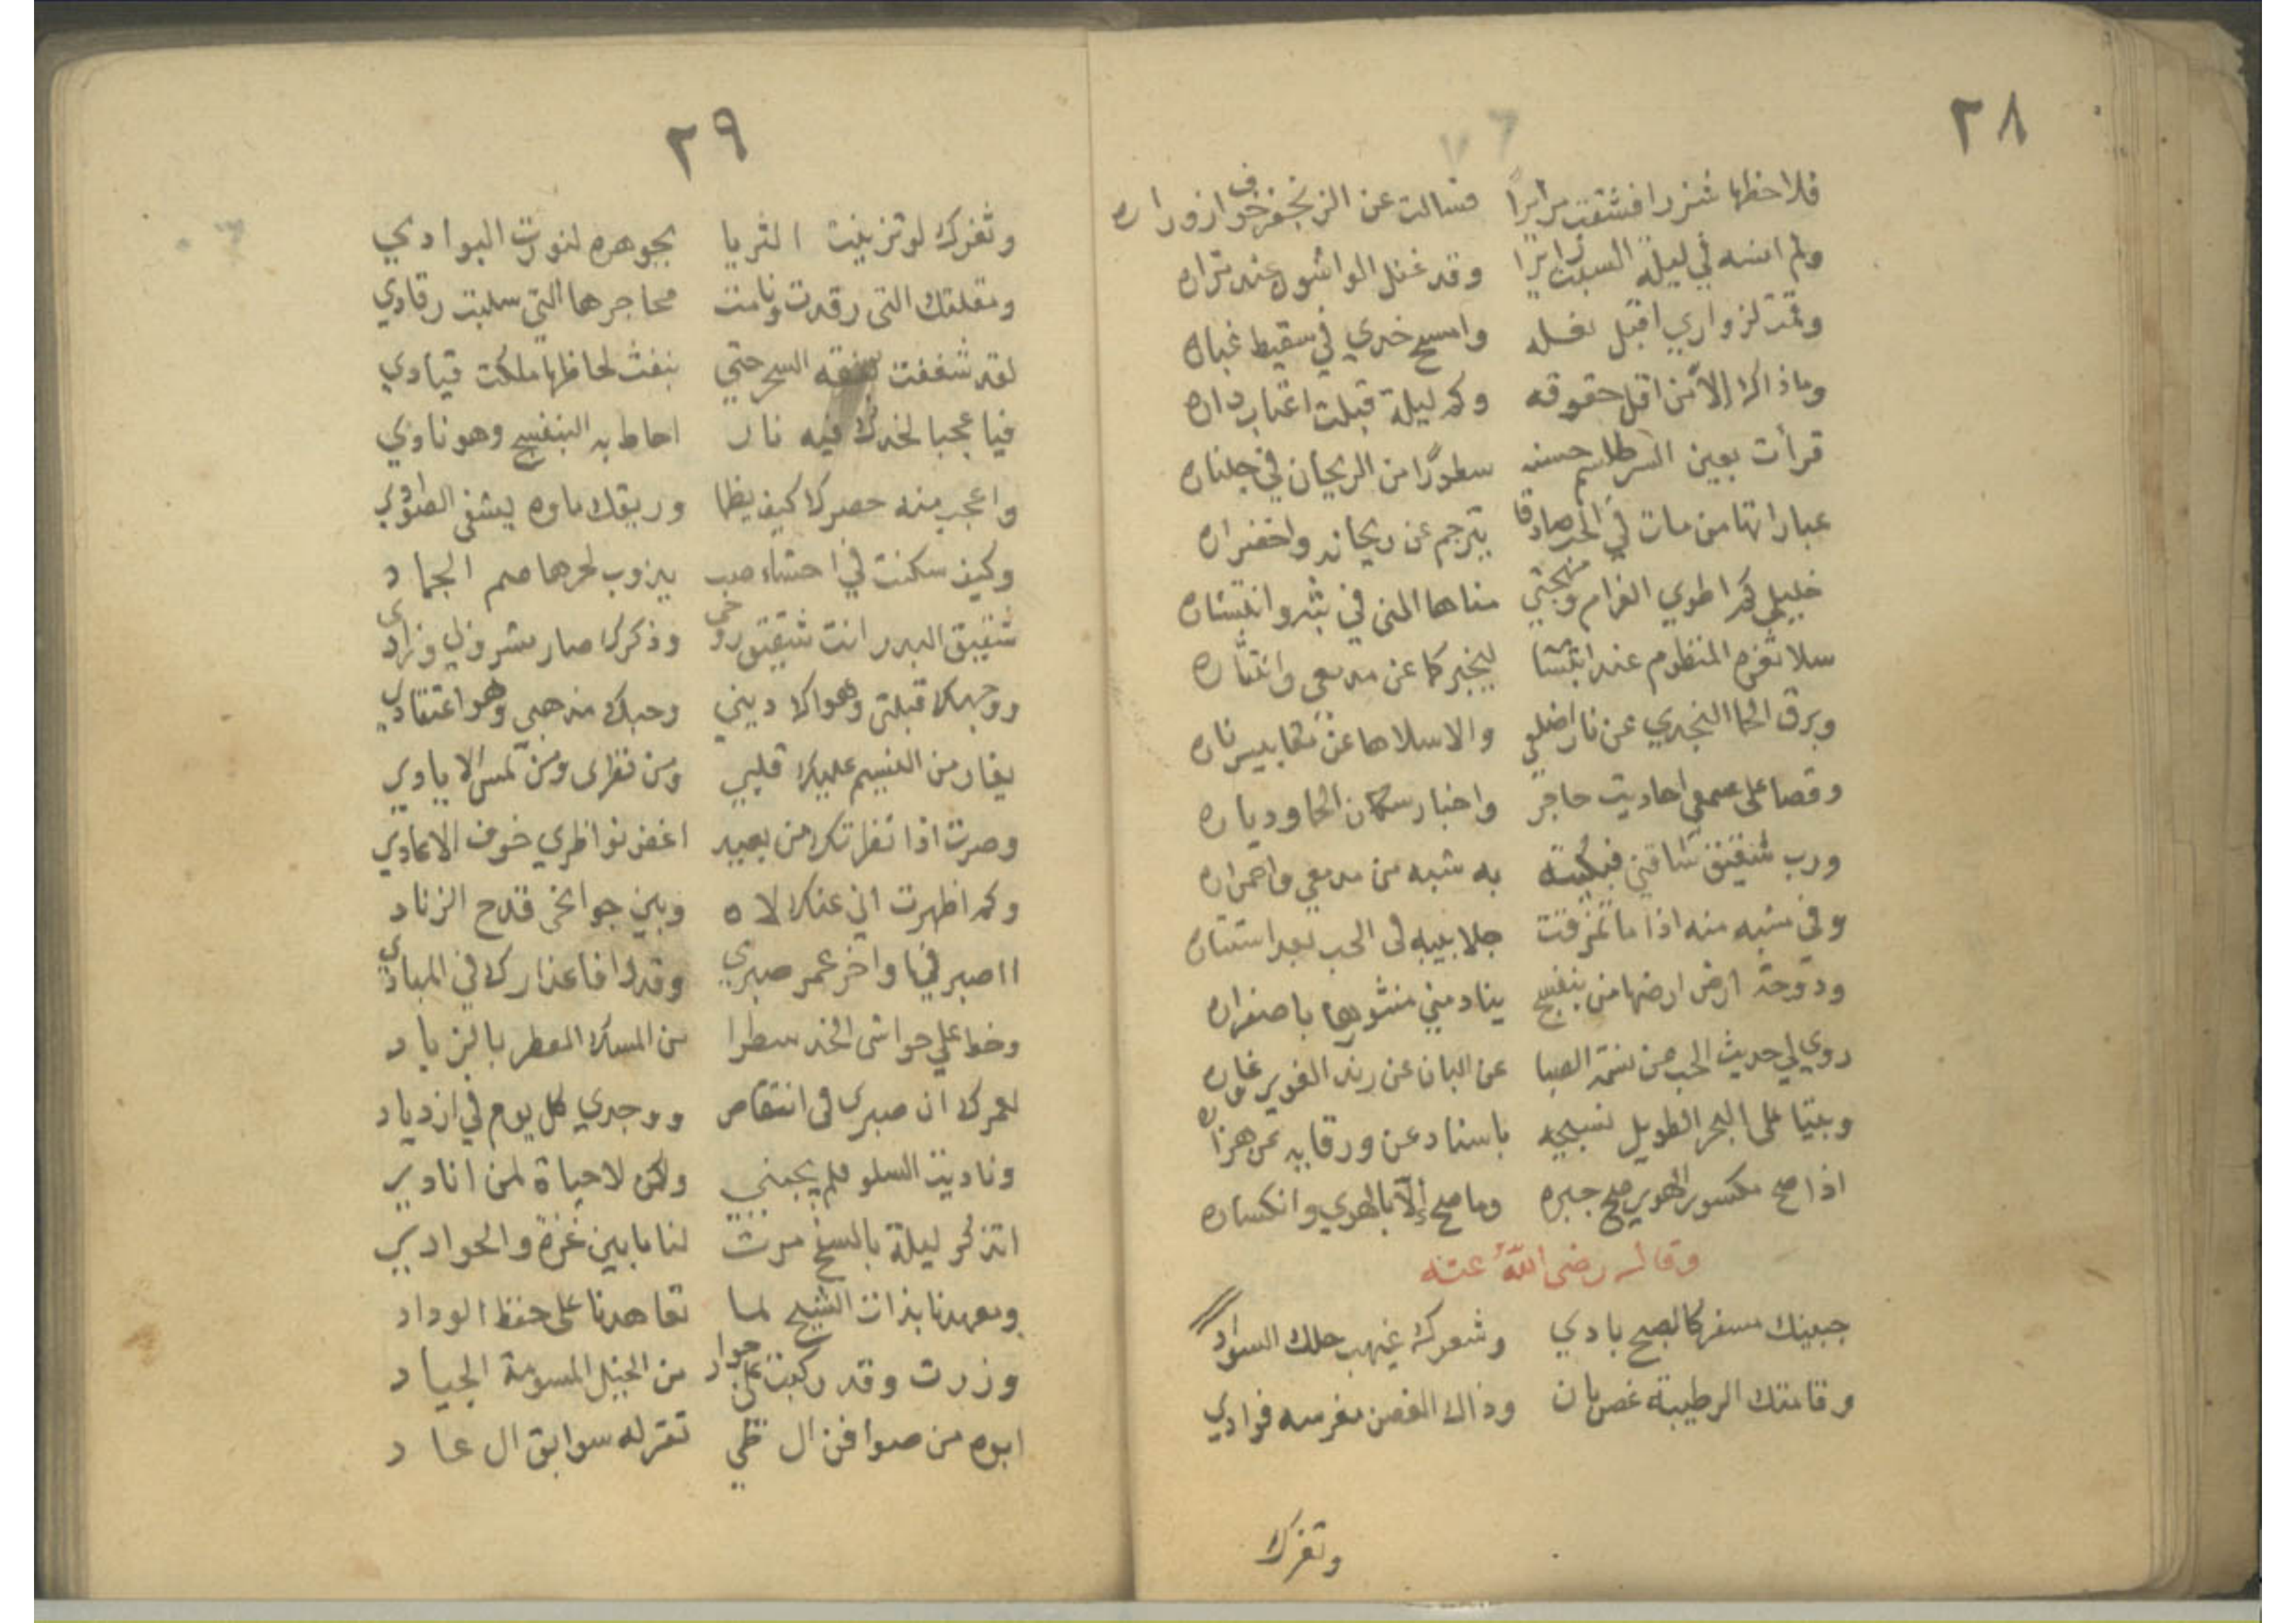 ٢٨
فلاحظها شزرا فشقت مرايرا فسالت عن الزنجفر خوف ازوراره
ولم انسه في ليلة السبت زايرا وقد غفل الواشون عند مزاره
وقمت لزواري اقبل نعله وامسح خدي في سقيط غباره
وما ذاك الا من اقل حقوقه وكم ليلة قبلت اعتاب داره
قرأت بعين السر طلسم حسنه سطورا من الريحان في جلناره
عباراتها من مات في الحب صادقا يترجم عن ريحانه واخضراره
خليلي كم اطوي الغرام ومهجتي مناها المنى في نشره وانتشاره
سلا ثغره المنظوم عند ابتسامه ليخبركما عن مدمعي وانتثاره
وبرق الحما النجدي عن نار اضلعي والا سلاها عن مقابيس ناره
وقصا على سمعي احاديث حاجر واخبار سكان الحما ودياره
ورب شقيق شاقني فبكيته به شبه من مدمعي واحمراره
وفي شبه منه اذا ما تمزقت جلابيبه في الحب بعد استتاره
ودوحة ارض ارضها من بنفسج ينادمني منثورها باصفراره
روي لي حديث الحب عن نسمة الصبا عن البان عن رند الغوير غاره
وبتيا على البحر الطويل نسيجه باسناد عن ورقايه عن هزاره
اذا صح مكسور الهوي صح جبره وما صح إلا بالهوي وانكساره
وقال رضى الله عنه
جبينك مسفر كالصبح بادي وشعرك غيهب حلك السواد
وقامتك الرطيبة غصن بان وذاك الغصن مغرسه فوادي
وثغرك
٢٩
وثغرك لو تزينت الثريا بجوهره لنورت البوادي
ومقلتك التي رقدت ونامت محاجرها التي سلبت رقادي
لقد شغفت السحر حتي بنفث لحاظها ملكت قيادي
فيا عجبا لخدك فيه نار احاط به البنفسج وهو نادي
واعجب منه خصرك كيف يظما وريقك ماوه يشفي الصوادي
وكيف سكنت في احشاء صب يذوب لحرها صم الجماد
شقيق البدر انت شقيق روحي وذكرك صار مشروبي وزادي
ووجهك قبلتي وهواك ديني وحبك مذهبي وهو اعتقادي
يغار من النسيم عليك قلبي ومن نظرى ومن لمس الايادي
وصرت اذا نظرتك من بعيد اغض نواظري خوف الاعادي
وكم اظهرت اني عنك لاه وبين جوانحى قدح الزناد
ااصبر فيك واخر عمر صبري وقد وافا عذارك في المبادي
وخط علي حواشى الخد سطرا من المسك المعطر بالزباد
لعمرك ان صبرى فى انتقاص ووجدي كل يوم في ازدياد
وناديت السلو فلم يجبني ولكن لا حياة لمن انادي
اتذكر ليلة بالسفح مرت لنا ما بين غزة والحوادي
ومعهدنا بذات الشيح لما تعاهدنا على حفظ الوداد
وزرت وقد ركبت على جواد من الخيل المسومة الجياد
ابوه من صوافن ال طي تقر له سوابق ال عاد